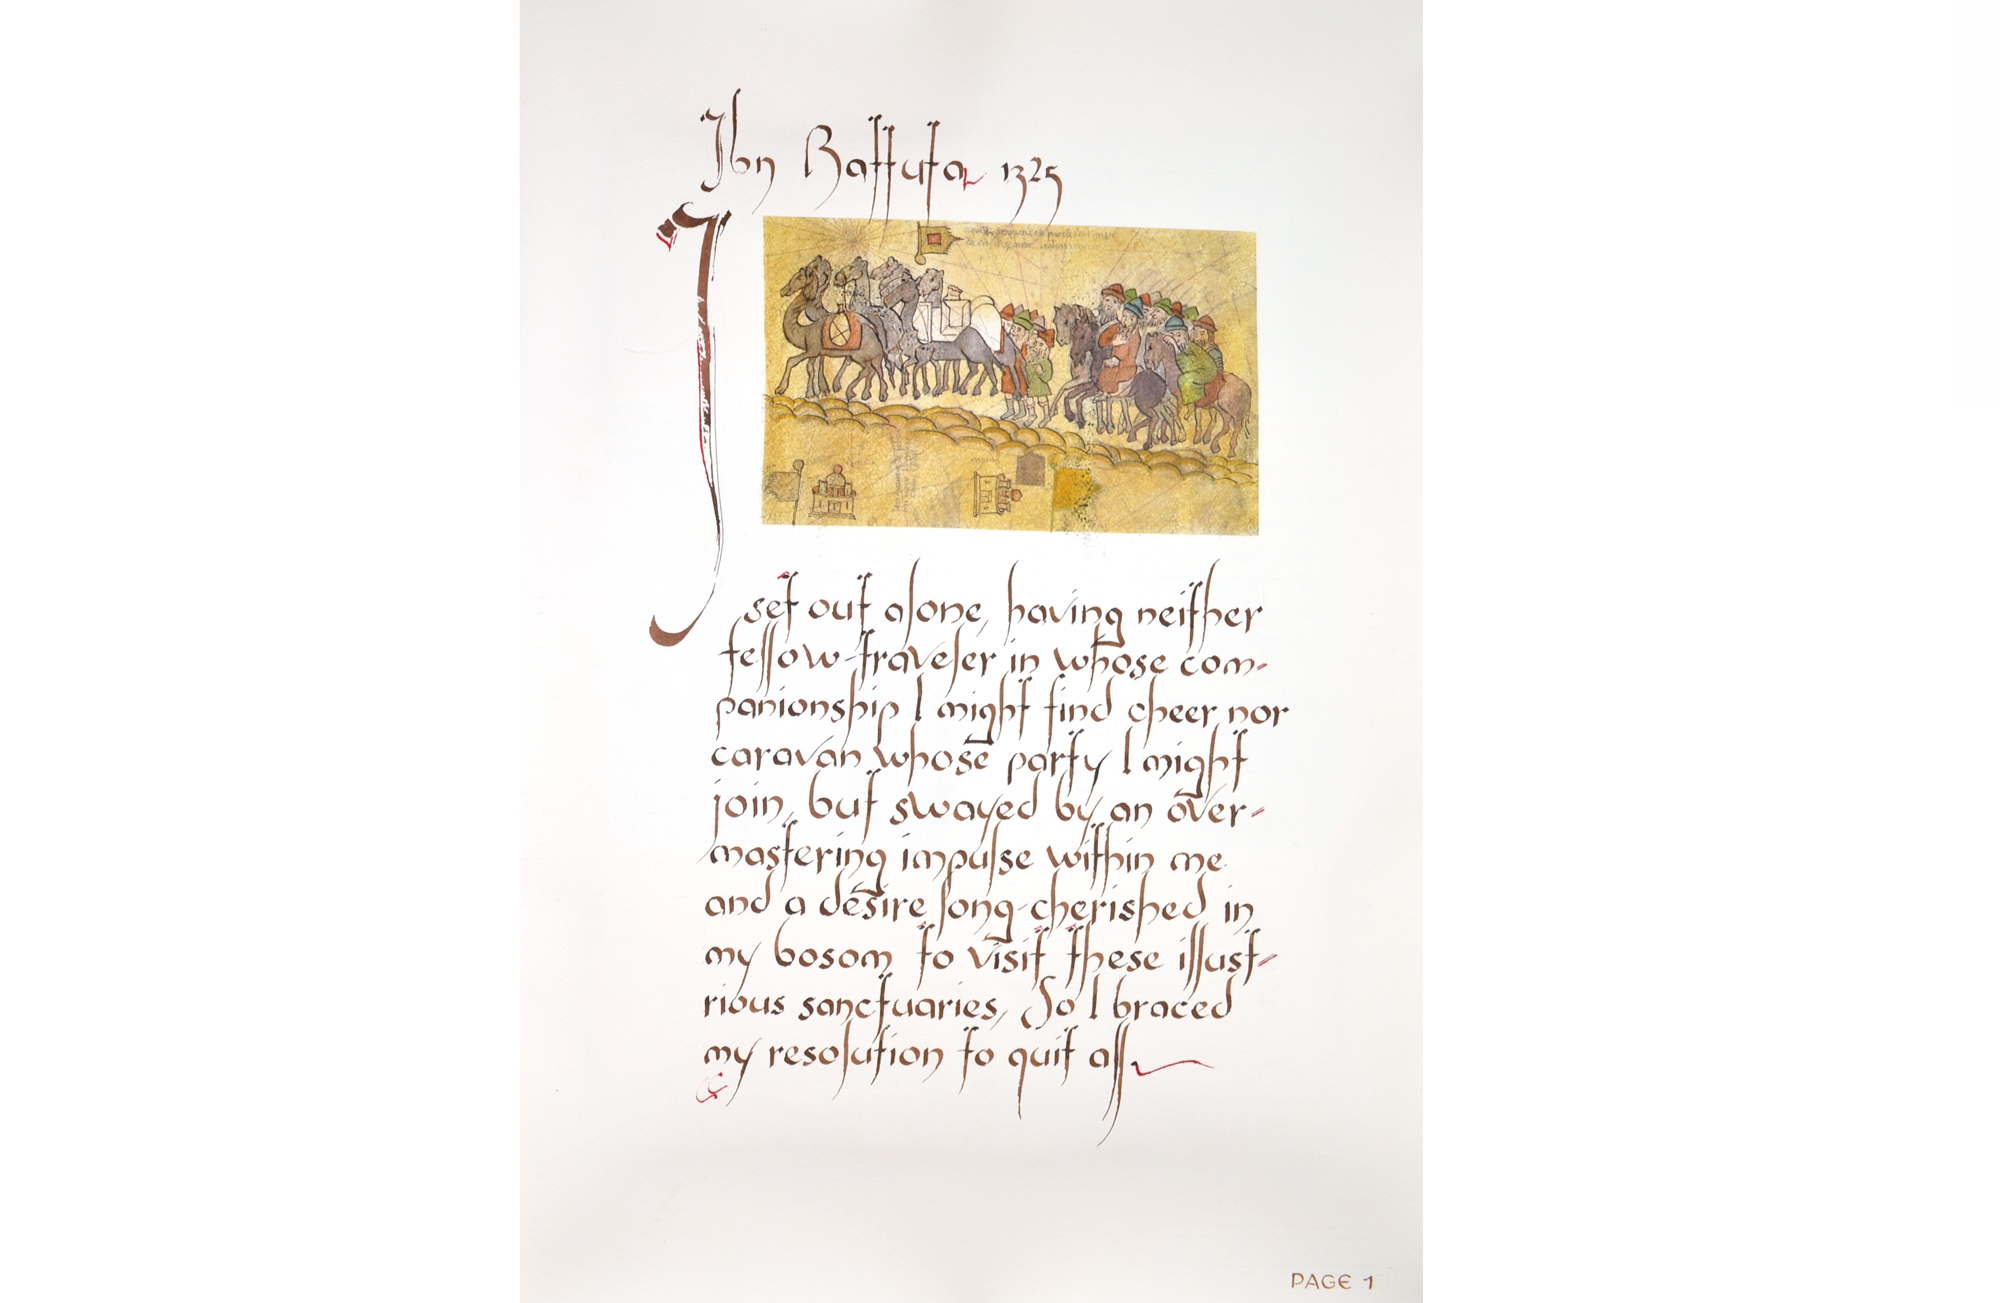 Ibn Battuta 1325
I
set out alone, having neither
fellow-traveler in whose com-
panionship I might find cheer nor
caravan whose party I might
join, but swayed by an over-
mastering impulse within me
and a desire long-cherished in
my bosom to visit these illust-
rious sanctuaries, So I braced
my resolution to quit all
PAGE 1